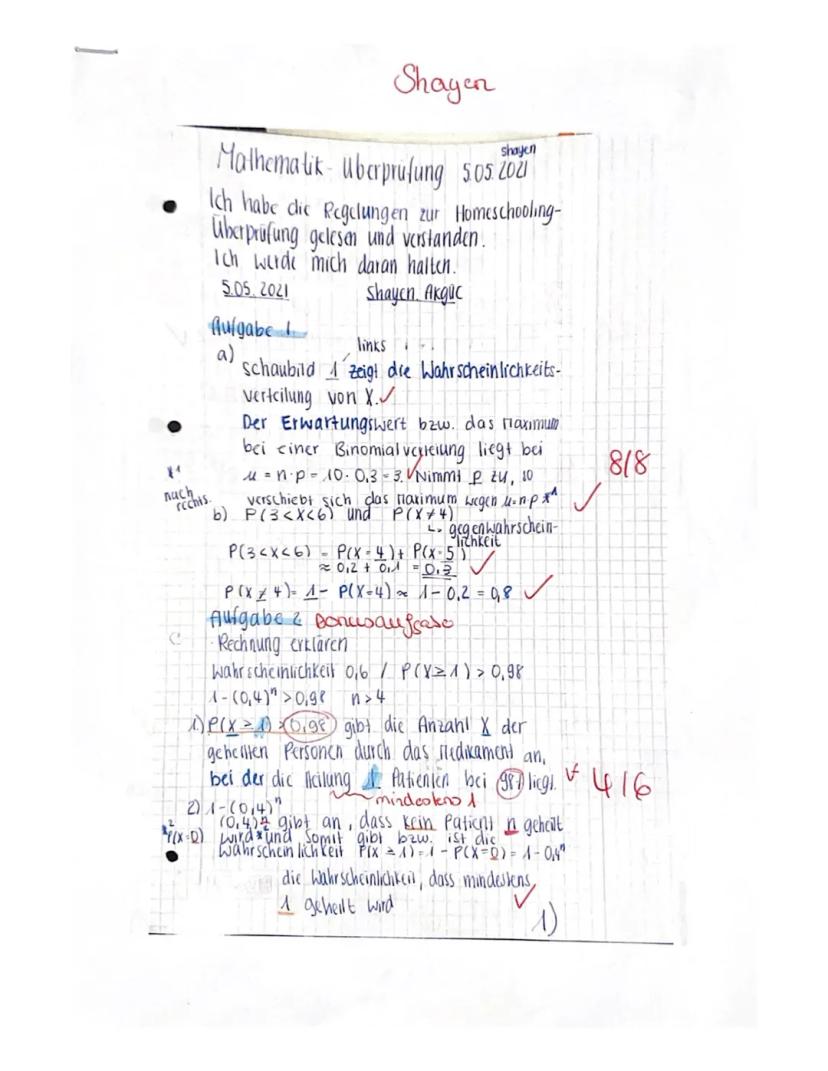 Shayen
Shayen
Mathematik-Überprüfung 5.05.2021
Ich habe die Regelungen zur Homeschooling-
Überprüfung gelesen und verstanden.
Ich werde mich daran halten.
5.05.2021 Shayen Akgüc
Aufgabe 1
links
a) Schaubild 1 zeigt die Wahrscheinlichkeits-
verteilung von X. ✓
Der Erwartungswert bzw. das Maximum
bei einer Binomialverteilung liegt bei
μ = n·p = 10·0,3 = 3. ✓ Nimmt p zu, so
verschiebt sich das Maximum wegen μ=n·p *1 ✓
*1 nach rechts.
8/8
b) P(3<X<6) und P(X≠4)
↳ gegenwahrschein-
lichkeit
P(3<X<6) = P(X=4) + P(X=5)
≈ 0,2 + 0,1 = 0,3 ✓
P(X≠4) = 1 - P(X=4) ≈ 1 - 0,2 = 0,8 ✓
Aufgabe 2 Bonusaufgabe
Rechnung erklären
Wahrscheinlichkeit 0,6 / P(X≥1) > 0,98
1-(0,4)ⁿ > 0,98 n>4
1) P(X≥1) > 0,98 gibt die Anzahl X der
geheilten Personen durch das Medikament an,
bei der die Heilung 1 Patienten bei 98% liegt.
mindestens 1
4/6
2) 1-(0,4)ⁿ
(0,4)ⁿ gibt an, dass kein Patient n geheilt
*2 P(X=0) wird *2 und somit gibt bzw. ist die
Wahrscheinlichkeit P(X≥1) = 1 - P(X=0) = 1-0,4ⁿ
die Wahrscheinlichkeit, dass mindestens
1 geheilt wird ✓
1)